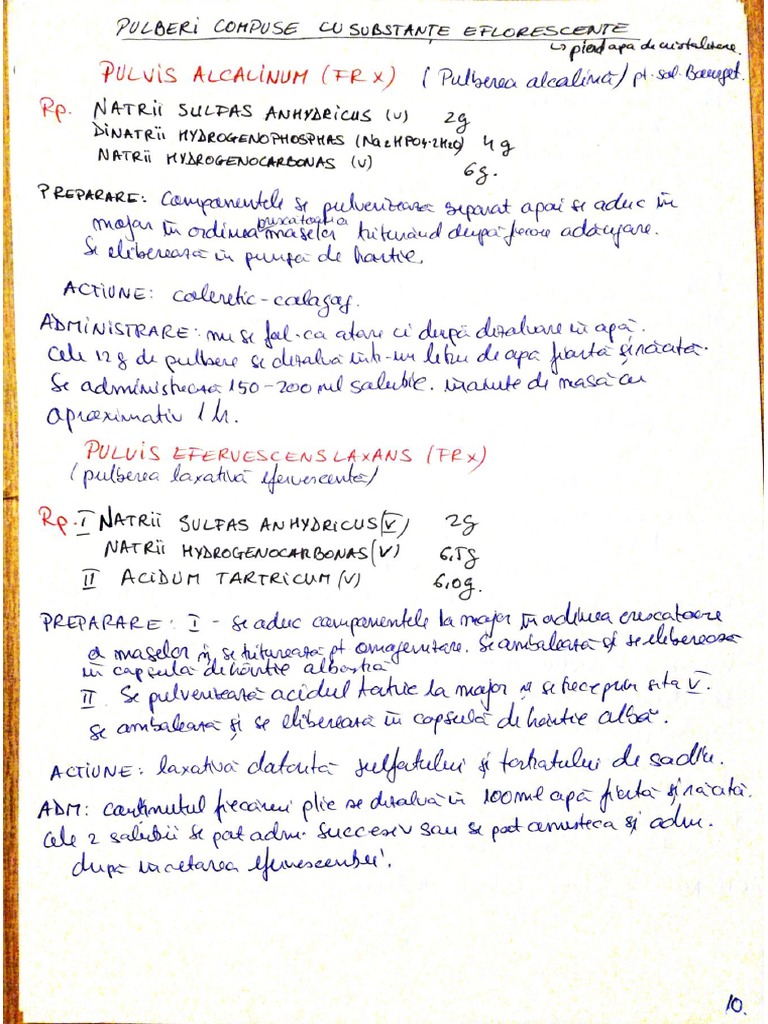 PULBERI COMPUSE CU SUBSTANȚE EFLORESCENTE
↳ pierd apa de cristalizare.
PULVIS ALCALINUM (FR X) (Pulberea alcalină) pt. sol. Bourget.
Rp. NATRII SULFAS ANHYDRICUS (V) 2g
DINATRII HYDROGENOPHOSPHAS (Na2HPO4·2H2O) 4g
NATRII HYDROGENOCARBONAS (V) 6g.
PREPARARE: Componentele se pulverizează separat apoi se aduc în
mojar în ordinea crescătoare maselor triturând după fiecare adăugare.
Se eliberează în pungă de hârtie.
ACTIUNE: coleretic-colagog.
ADMINISTRARE: nu se fol. ca atare ci după dizolvare în apă.
Cele 12g de pulbere se dizolvă într-un litru de apă fiartă și răcită.
Se administrează 150-200 ml soluție. înainte de masă cu
aproximativ 1h.
PULVIS EFERVESCENS LAXANS (FR X)
(pulberea laxativă efervescentă)
Rp. I NATRII SULFAS ANHYDRICUS (V) 2g
NATRII HYDROGENOCARBONAS (V) 6,5g
II ACIDUM TARTRICUM (V) 6,0g.
PREPARARE: I - se aduc componentele la mojar în ordinea crescătoare
a maselor și se triturează pt omogenizare. Se ambalează și se eliberează
în capsulă de hârtie albastră
II Se pulverizează acidul tartric la mojar și se trece prin sita V.
Se ambalează și se eliberează în capsulă de hârtie albă.
ACTIUNE: laxativă datorită sulfatului și tartratului de sodiu.
ADM: conținutul fiecărui plic se dizolvă în 100 ml apă fiartă și răcită.
Cele 2 soluții se pot adm. succesiv sau se pot amesteca și adm.
după încetarea efervescenței.
10.